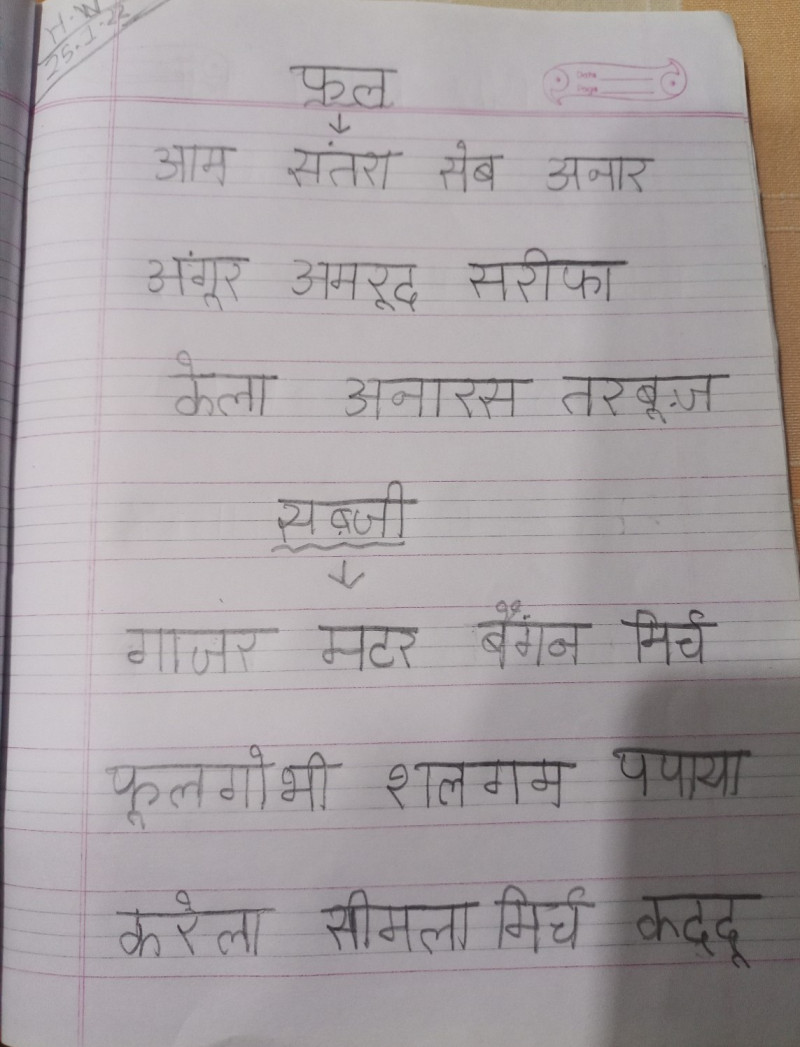 H.W
25.1.22
फल
↓
आम संतरा सेब अनार
अंगूर अमरूद सरीफा
केला अनारस तरबूज़
सब़्जी
↓
गाजर मटर बैंगन मिर्च
फूलगोभी शलगम पपाया
करेला सीमला मिर्च कद्दू